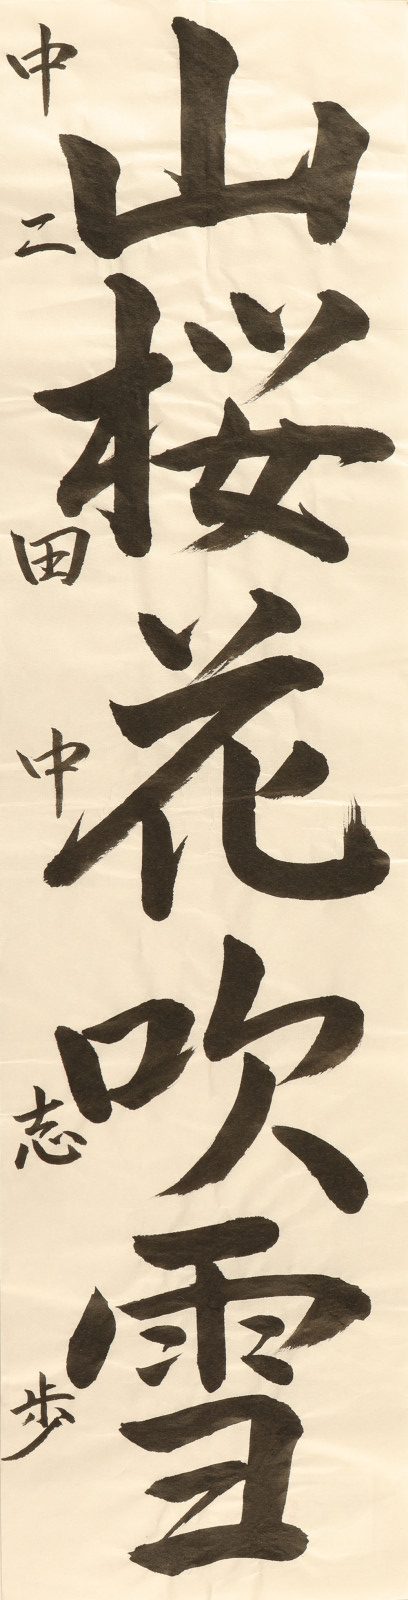 山桜花吹雪
中二 田中志歩